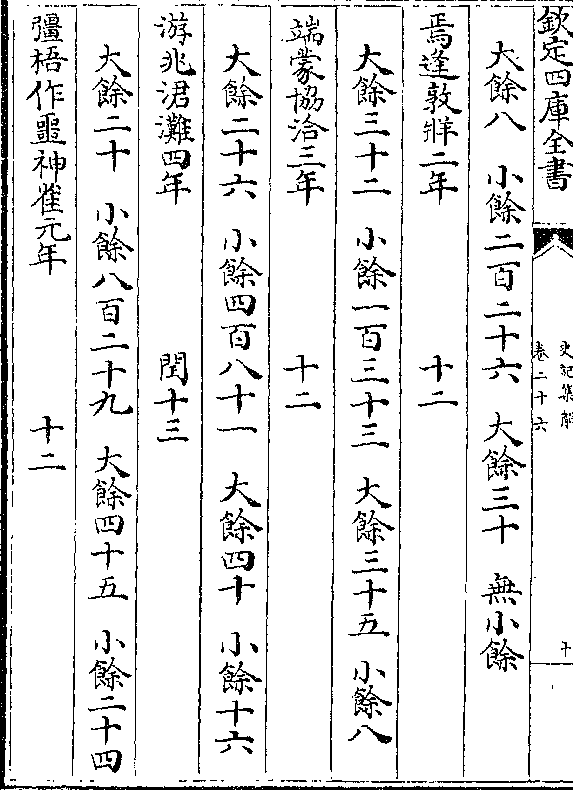 欽定四庫全書
史記集解
卷二十六
十
大餘八　小餘二百二十六　大餘三十　無小餘
焉逢敦牂二年　十二
大餘三十二　小餘一百三十三　大餘三十五　小餘八
端蒙協洽三年　十二
大餘二十六　小餘四百八十一　大餘四十　小餘十六
游兆涒灘四年　閏十三
大餘二十　小餘八百二十九　大餘四十五　小餘二十四
彊梧作噩神雀元年　十二